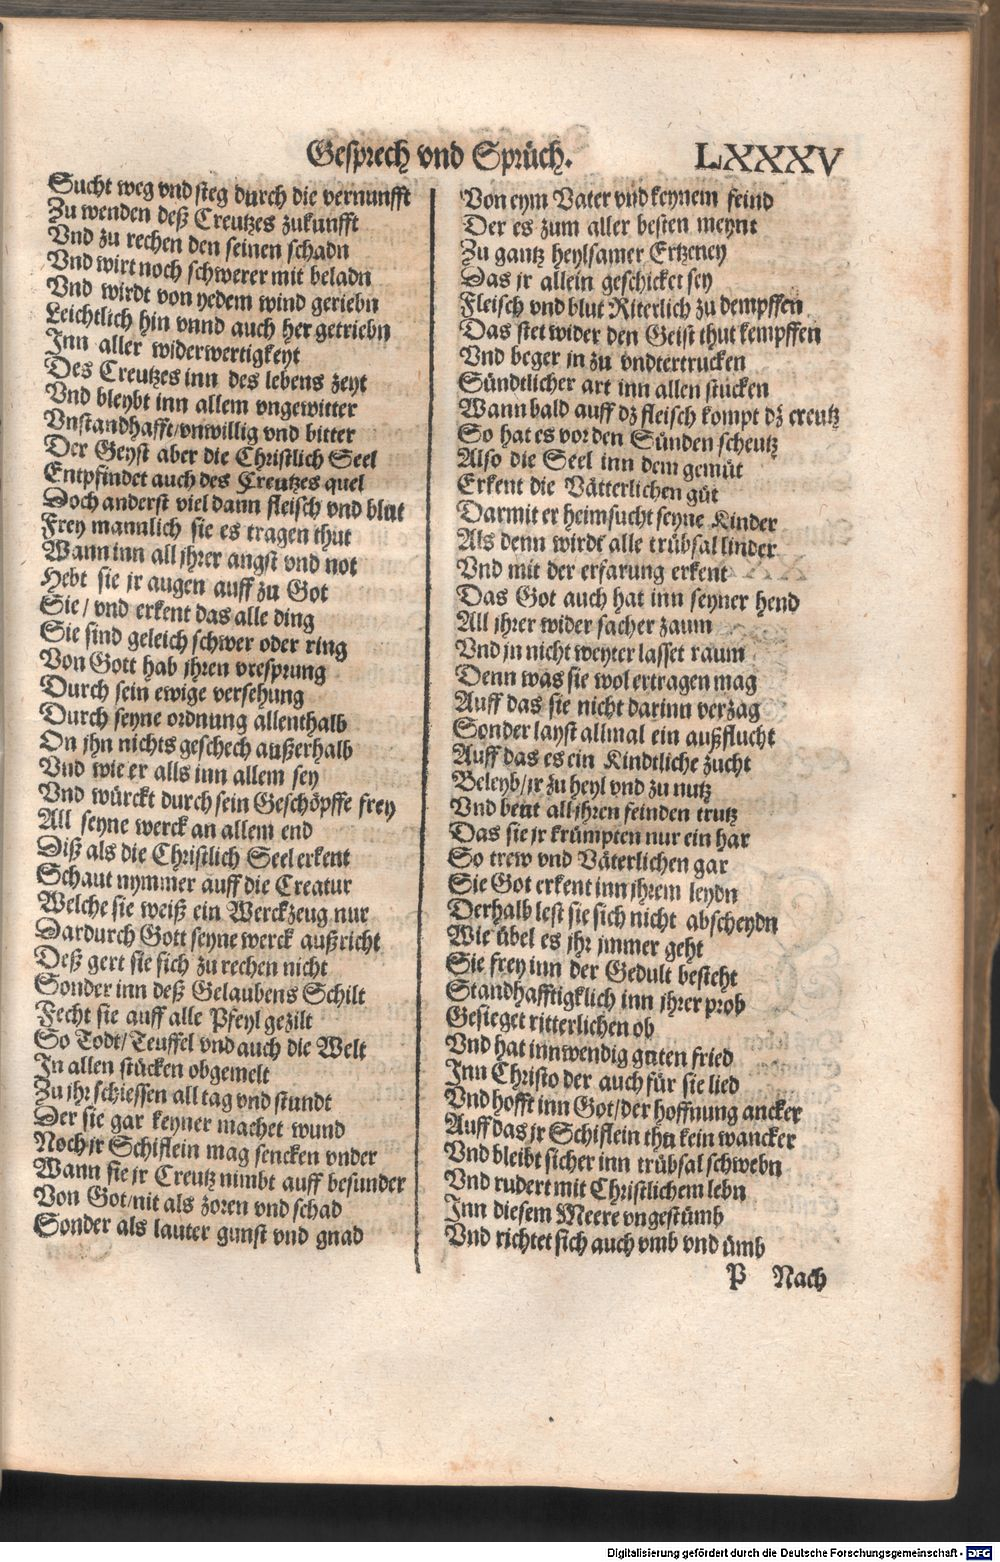 Gesprech vnd Sprüch. LXXXV
Sucht weg vnd steg durch die vernunfft
Zu wenden deß Creutzes zukunfft
Vnd zu rechen den seinen schadn
Vnd wirt noch schwerer mit beladn
Vnd wirdt von yedem wind geriebn
Leichtlich hin vnnd auch her getriebn
Inn aller widerwertigkeyt
Des Creutzes inn des lebens zeyt
Vnd bleybt inn allem vngewitter
Vnstandhafft/vnwillig vnd bitter
Der Geyst aber die Christlich Seel
Entpfindet auch des Creutzes quel
Doch anderst viel dann fleisch vnd blut
Frey mannlich sie es tragen thut
Wann inn all jhrer angst vnd not
Hebt sie jr augen auff zu Got
Sie/ vnd erkent das alle ding
Sie sind geleich schwer oder ring
Von Gott hab jhren vresprung
Durch sein ewige versehung
Durch seyne ordnung allenthalb
On jhn nichts geschech außerhalb
Vnd wie er alls inn allem sey
Vnd würckt durch sein Geschöpffe frey
All seyne werck an allem end
Diß als die Christlich Seel erkent
Schaut nymmer auff die Creatur
Welche sie weiß ein Werckzeug nur
Dardurch Gott seyne werck außricht
Deß gert sie sich zu rechen nicht
Sonder inn deß Gelaubens Schilt
Fecht sie auff alle Pfeyl gezilt
So Todt/Teuffel vnd auch die Welt
In allen stücken obgemelt
Zu jhr schiessen all tag vnd stundt
Der sie gar keyner machet wund
Noch jr Schiflein mag sencken vnder
Wann sie jr Creutz nimbt auff besunder
Von Got/nit als zoren vnd schad
Sonder als lauter gunst vnd gnad
Von eym Vater vnd keynem feind
Der es zum aller besten meynt
Zu gantz heylsamer Ertzeney
Das jr allein geschicket sey
Fleisch vnd blut Riterlich zu dempffen
Das stet wider den Geist thut kempffen
Vnd beger jn zu vndtertrucken
Sündtlicher art inn allen stücken
Wann bald auff dz fleisch kompt dz creutz
So hat es vor den Sünden scheutz
Also die Seel inn dem gemüt
Erkent die Vätterlichen güt
Darmit er heimsucht seyne Kinder
Als denn wirdt alle trübsal linder
Vnd mit der erfarung erkent
Das Got auch hat inn seyner hend
All jhrer wider sacher zaum
Vnd jn nicht weyter lasset raum
Denn was sie wol ertragen mag
Auff das sie nicht darinn verzag
Sonder layst allmal ein außflucht
Auff das es ein Kindtliche zucht
Beleyb/jr zu heyl vnd zu nutz
Vnd beut all jhren feinden trutz
Das sie jr krümpten nur ein har
So trew vnd Väterlichen gar
Sie Got erkent inn jhrem leydn
Derhalb lest sie sich nicht abscheydn
Wie übel es jhr jmmer geht
Sie frey inn der Gedult besteht
Standhafftigklich inn jhrer prob
Gesieget ritterlichen ob
Vnd hat innwendig guten fried
Inn Christo der auch für sie lied
Vnd hofft inn Got/der hoffnung ancker
Auff das jr Schiflein thu kein wancker
Vnd bleibt sicher inn trübsal schwebn
Vnd rudert mit Christlichem lebn
Inn diesem Meere vngestümb
Vnd richtet sich auch vmb vnd ümb
P Nach
Digitalisierung gefördert durch die Deutsche Forschungsgemeinschaft - DFG